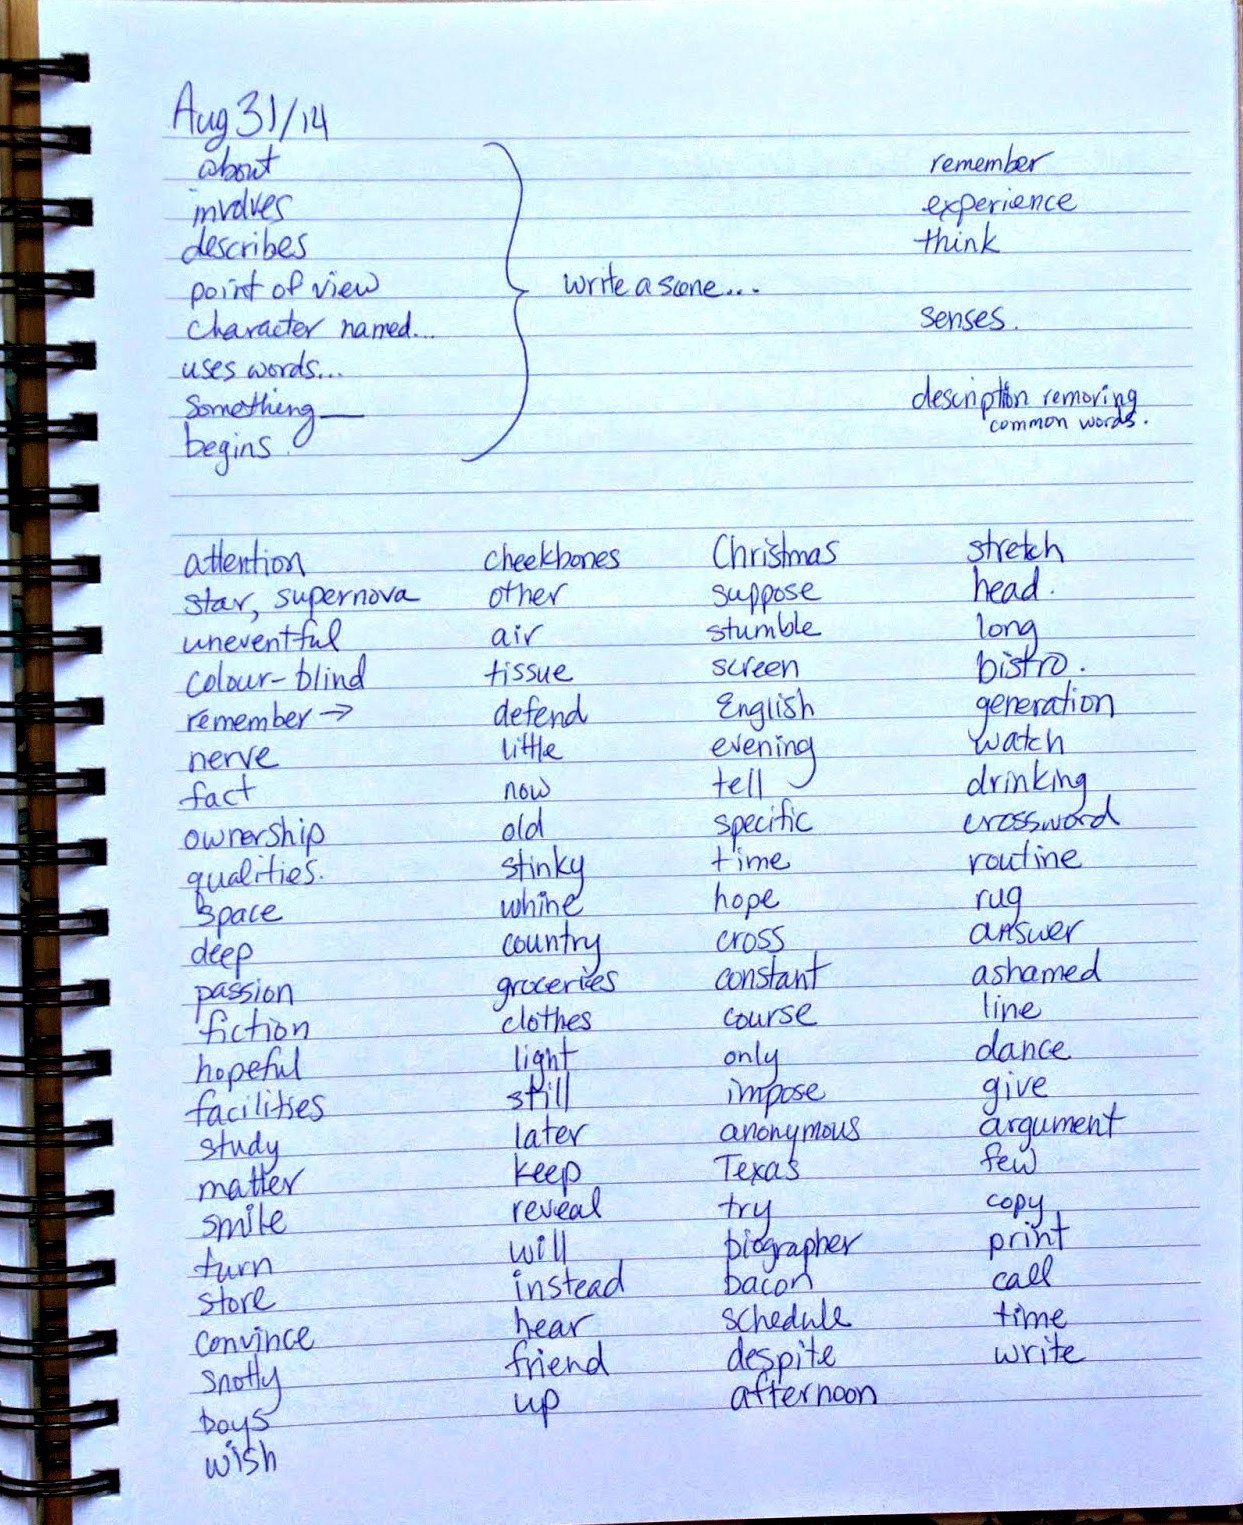 Aug 31/14
about
involves
describes
point of view
character named...
uses words...
something ___
begins.
write a scene...
remember
experience
think
senses.
description removing
common words.
attention
star, supernova
uneventful
colour-blind
remember →
nerve
fact
ownership
qualities.
space
deep
passion
fiction
hopeful
facilities
study
matter
smile
turn
store
convince
snotty
boys
wish
cheekbones
other
air
tissue
defend
little
now
old
stinky
whine
country
groceries
clothes
light
still
later
keep
reveal
will
instead
hear
friend
up
Christmas
suppose
stumble
screen
English
evening
tell
specific
time
hope
cross
constant
course
only
impose
anonymous
Texas
try
biographer
bacon
schedule
despite
afternoon
stretch
head.
long
bistro.
generation
watch
drinking
crossword
routine
rug
answer
ashamed
line
dance
give
argument
few
copy
print
call
time
write